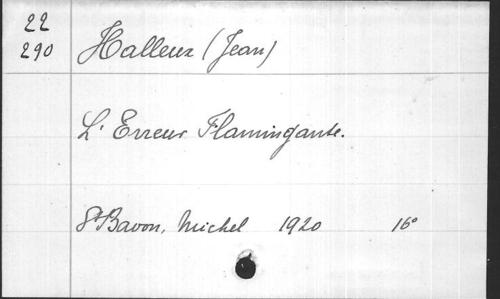 22
290
Halleux (Jean)
L'Erreur Flamingante.
St Bavon, Michel 1920 16°